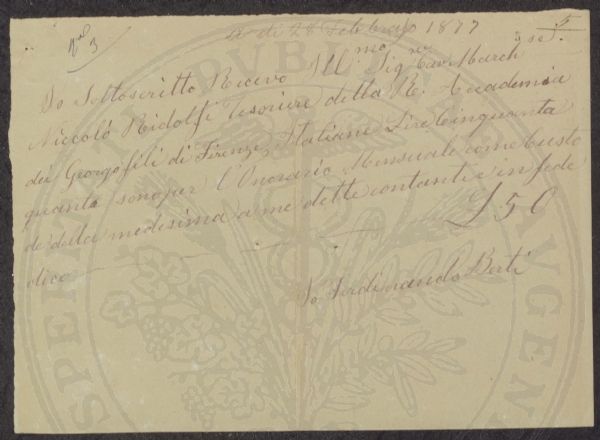 N.º 3
A dì 28 Febbraio 1877
Io Sottoscritto Ricevo Ill.mo Sig.re Cav. March.se
Niccolò Ridolfi Tesoriere della R.e Accademia
dei Georgofili di Firenze, Italiane Lire Cinquanta
quante sono per l'Onorario Mensuale come Custo
de della medesima a me dette contanti e in fede
dico £ 50
Io Ferdinando Berti